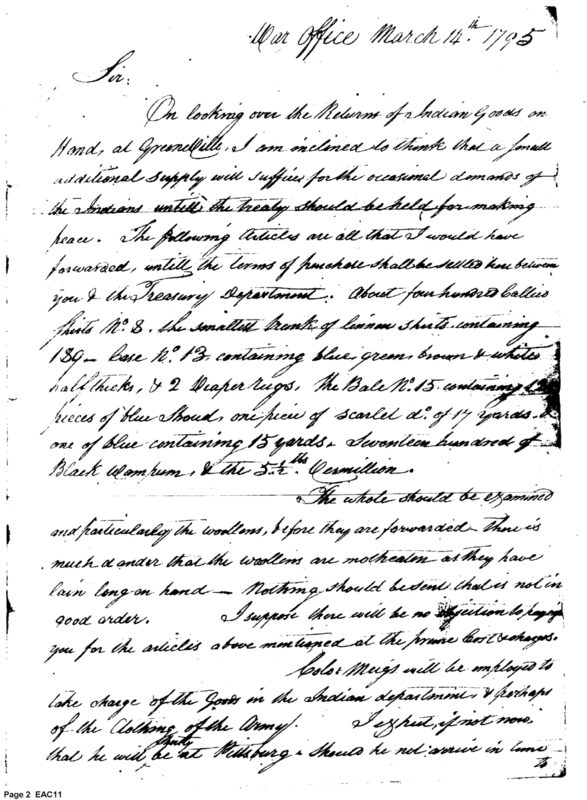 War Office March 14th. 1795
Sir,
On looking over the Returns of Indian Goods on
Hand, at GreeneVille, I am inclined to think that a small
additional supply will suffice for the occasional demands of
the Indians untill the treaty should be held for making
peace. The following Articles are all that I would have
forwarded, untill the terms of purchase shall be settled here between
you & the Treasury Department. About four hundred Callico
shirts No. 8. the smallest trunk of linnen shirts containing
189 - Case No. 13 containing blue green brown & white
half thicks, & 2 Diaper rugs, the Bale No. 15 containing
pieces of blue Stroud, one piece of scarlet do. of 17 yards, &
one of blue containing 15 yards, Seventeen hundred of
Black Wampum, & the 5 1/2 lbs Vermillion.
The whole should be examined
and particularly the woollens, before they are forwarded - there is
much danger that the woollens are motheaten as they have
lain long on hand - Nothing should be sent that is not in
good order. I suppose there will be no objection to paying
you for the articles above mentioned at the prime Cost & charges.
Color Meigs will be employed to
take charge of the Goods in the Indian department, & perhaps
of the Clothing of the Army. I expect, if not now
that he will shortly be at Pittsburg - should he not arrive in time
to
Page 2 EAC11